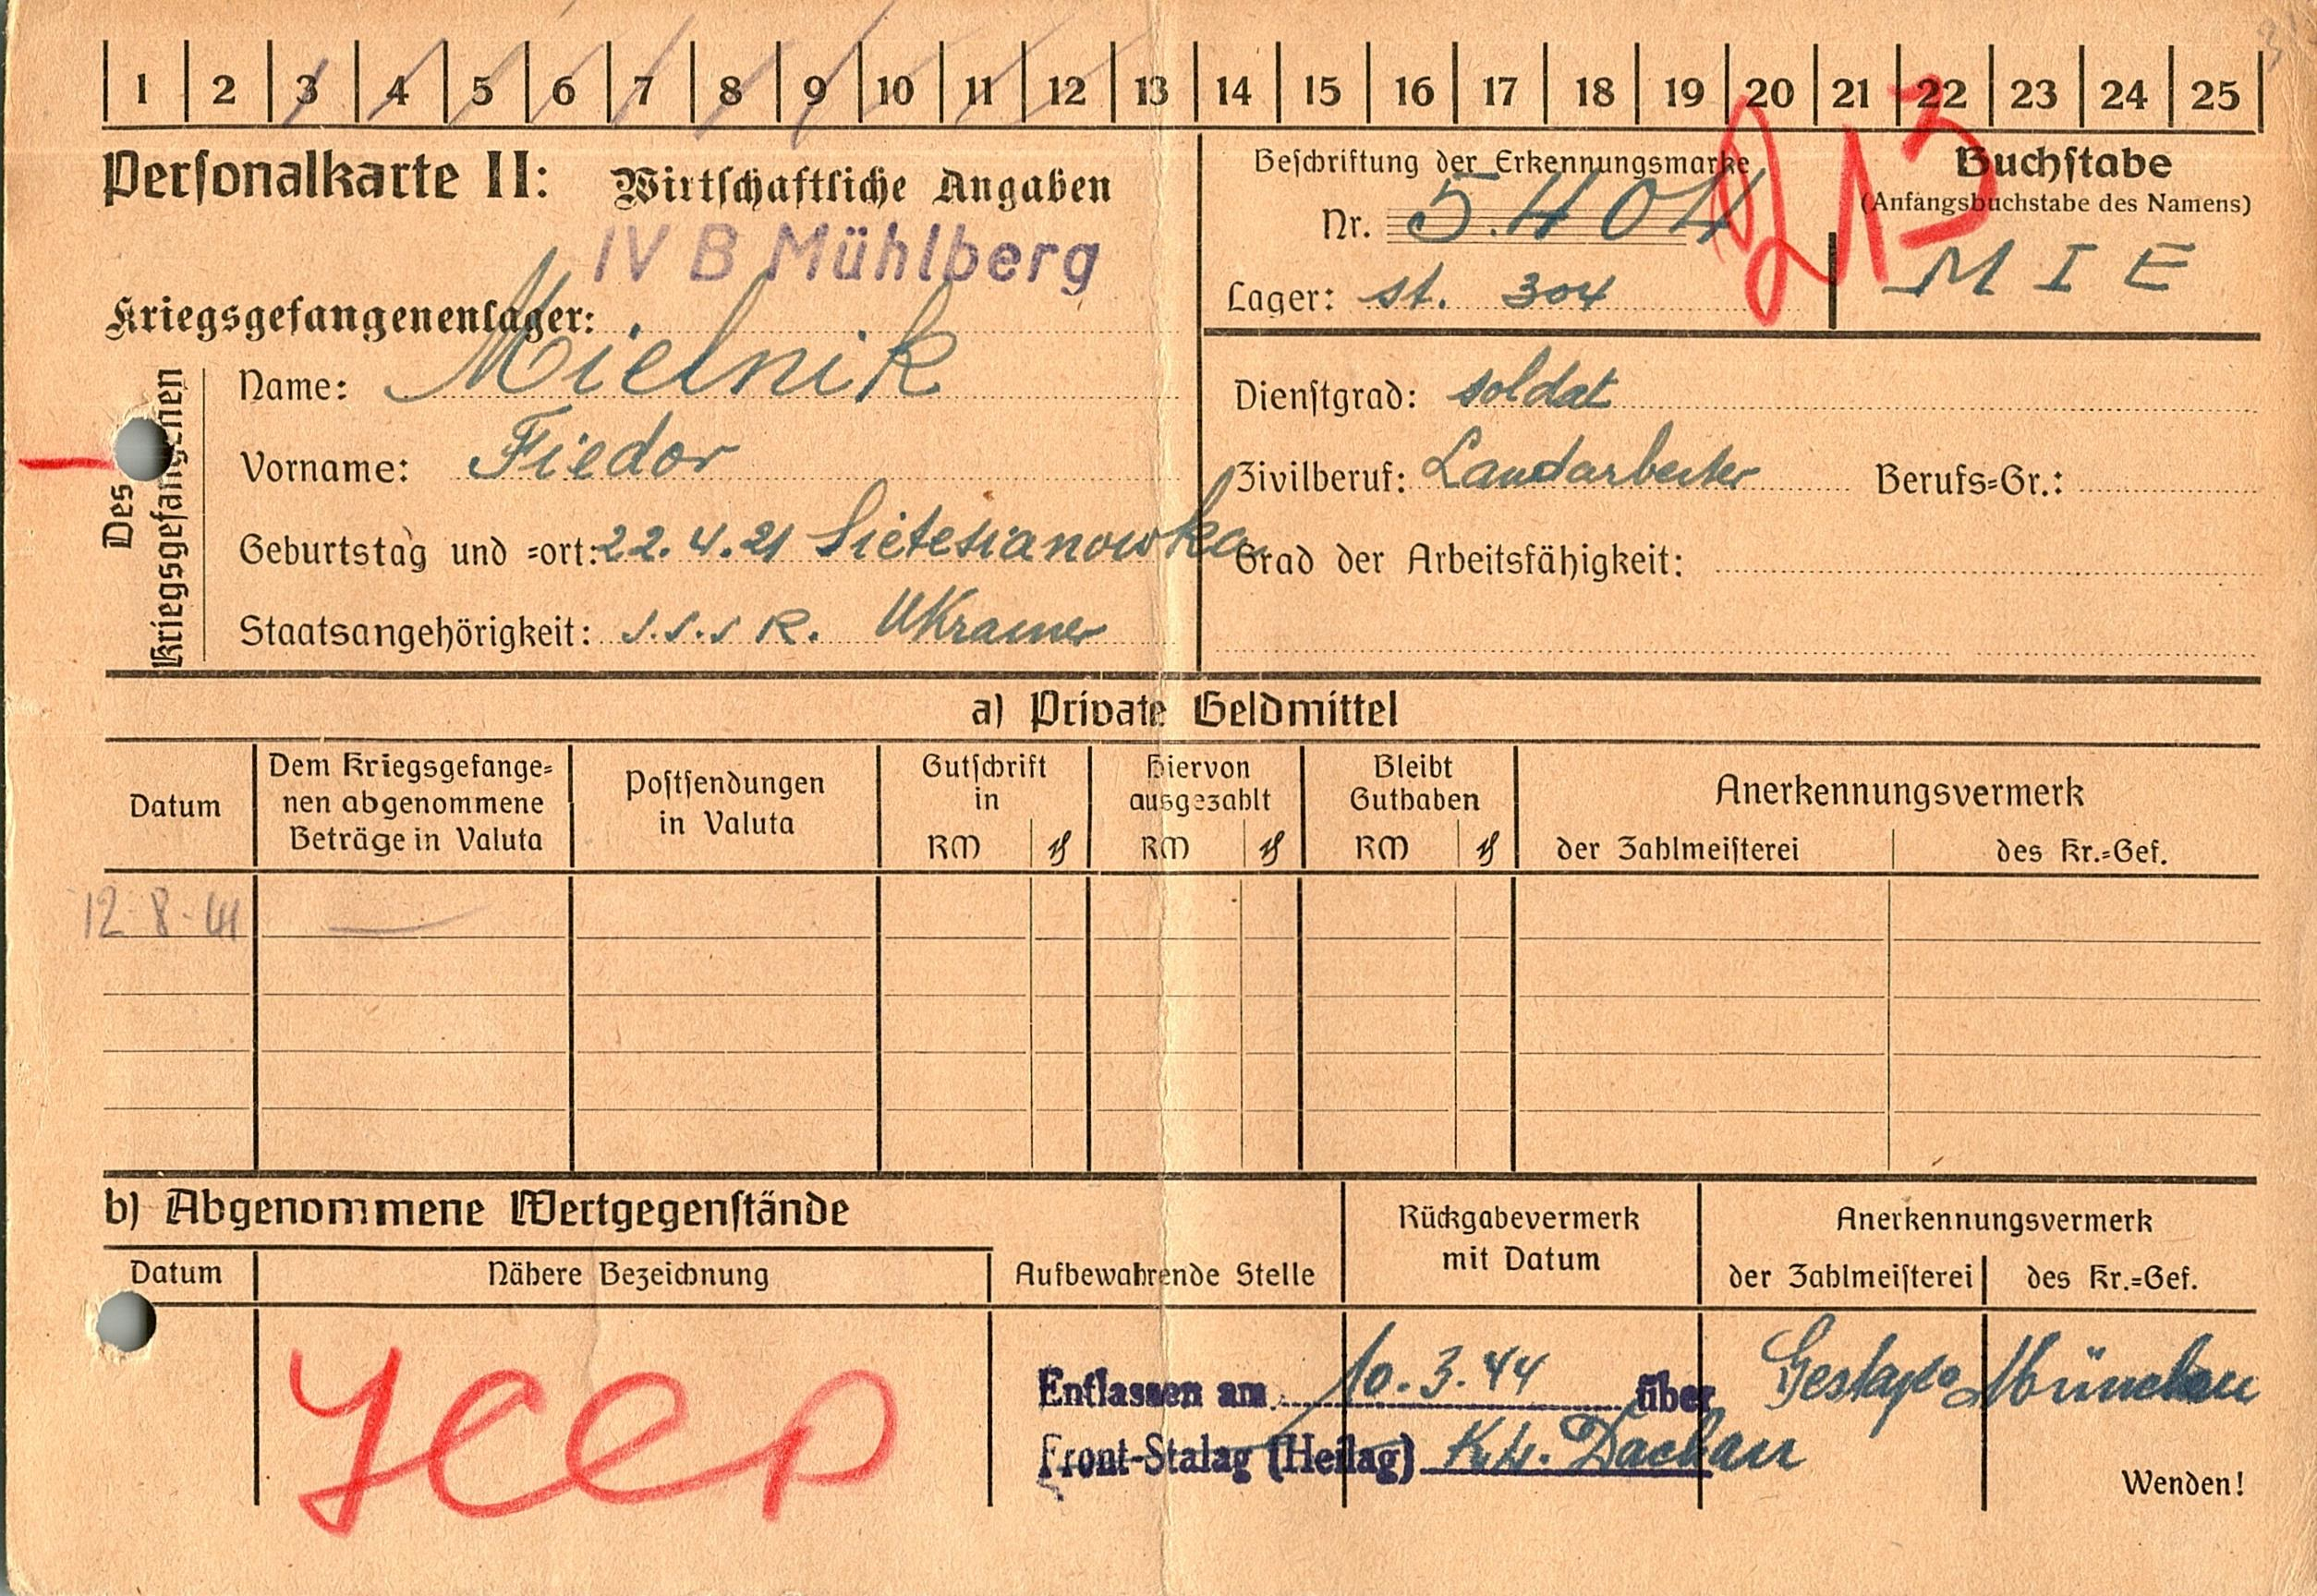 1 2 3 4 5 6 7 8 9 10 11 12 13 14 15 16 17 18 19 20 21 22 23 24 25
Personalkarte II: Wirtschaftliche Angaben
IV B Mühlberg
Kriegsgefangenenlager:
Beschriftung der Erkennungsmarke
Nr. 5.404
Lager: st. 304
213
Buchstabe
(Anfangsbuchstabe des Namens)
M I E
Des Kriegsgefangenen
Name: Mielnik
Vorname: Fiedor
Geburtstag und =ort: 22.4.21
Staatsangehörigkeit: S.S.S R. Ukrainer
Dienstgrad: soldat
Zivilberuf: Landarbeiter Berufs=Gr.:
Grad der Arbeitsfähigkeit:
a) Private Geldmittel
Datum
Dem Kriegsgefange=
nen abgenommene
Beträge in Valuta
Postsendungen
in Valuta
Gutschrift
in
RM ₰
Hiervon
ausgezahlt
RM ₰
Bleibt
Guthaben
RM ₰
Anerkennungsvermerk
der Zahlmeisterei des Kr.=Gef.
12-8-41 —
b) Abgenommene Wertgegenstände
Datum Nähere Bezeichnung
Aufbewahrende Stelle
Rückgabevermerk
mit Datum
Anerkennungsvermerk
der Zahlmeisterei des Kr.=Gef.
Entlassen am 10.3.44 über Gestapo München
Front-Stalag (Heilag) K.L. Dachau
Wenden!